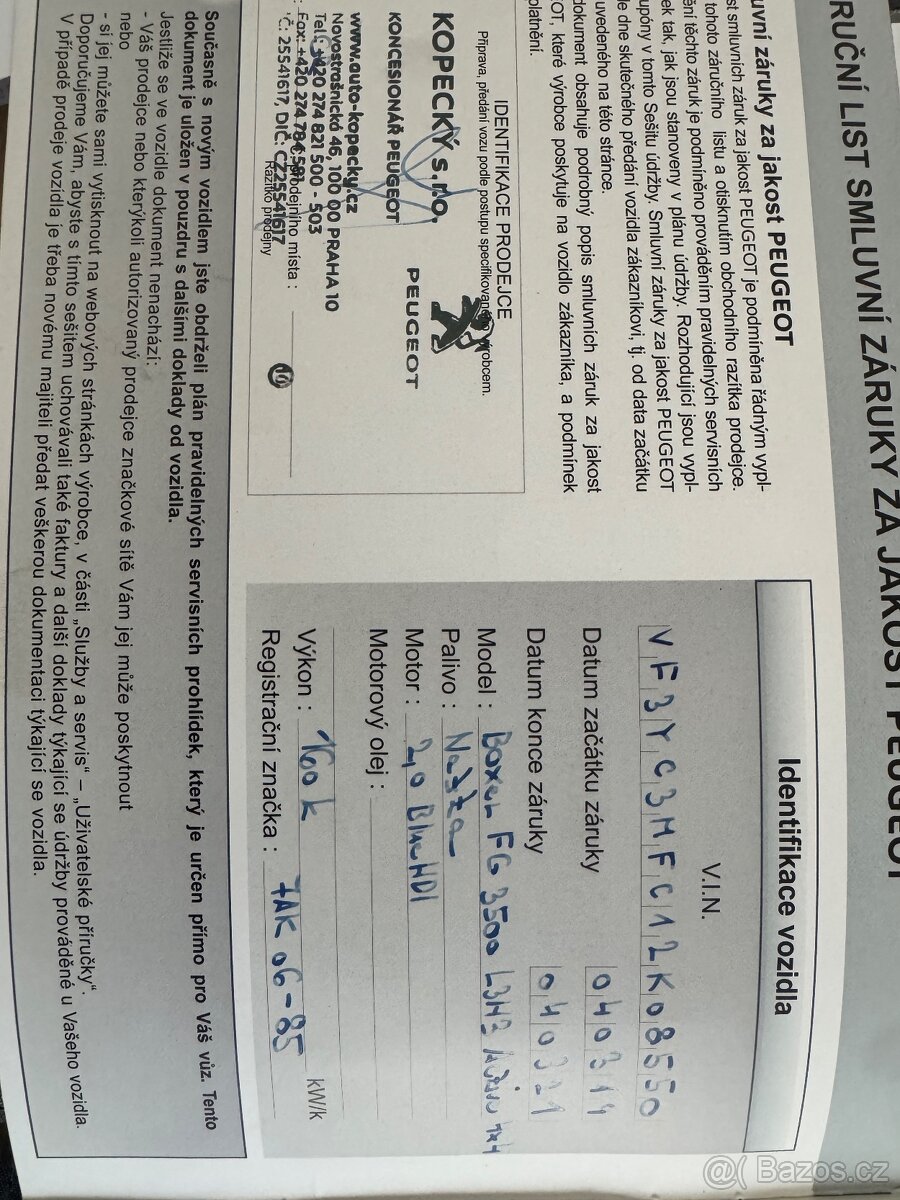 RUČNÍ LIST SMLUVNÍ ZÁRUKY ZA JAKOST PEUGEOT
uvní záruky za jakost PEUGEOT
st smluvních záruk za jakost PEUGEOT je podmíněna řádným vypl-
tohoto záručního listu a otisknutím obchodního razítka prodejce.
ění těchto záruk je podmíněno prováděním pravidelných servisních
ek tak, jak jsou stanoveny v plánu údržby. Rozhodující jsou vypl-
upóny v tomto Sešitu údržby. Smluvní záruky za jakost PEUGEOT
le dne skutečného předání vozidla zákazníkovi, tj. od data začátku
uvedeného na této stránce.
dokument obsahuje podrobný popis smluvních záruk za jakost
OT, které výrobce poskytuje na vozidlo zákazníka, a podmínek
platnění.
IDENTIFIKACE PRODEJCE
Příprava, předání vozu podle postupu specifikovaného výrobcem.
KOPECKÝ s.r.o.
KONCESIONÁŘ PEUGEOT
PEUGEOT
www.auto-kopecky.cz
Novostrašnická 46, 100 00 PRAHA 10
Tel.: +420 274 821 500 - 503
Fax: +420 274 784 581
prodejního místa :
IČ: 25541617, DIČ: CZ25541617
Razítko prodejny
10
Identifikace vozidla
V.I.N.
VF3YC3MFC12K08550
Datum začátku záruky 040319
Datum konce záruky 040321
Model : Boxer FG 3500 L3H2 4x4
Palivo : Nafta
Motor : 2,0 BlueHDI
Motorový olej :
Výkon : 160 k kW/k
Registrační značka : 7AK 06-85
Současně s novým vozidlem jste obdrželi plán pravidelných servisních prohlídek, který je určen přímo pro Váš vůz. Tento
dokument je uložen v pouzdru s dalšími doklady od vozidla.
Jestliže se ve vozidle dokument nenachází:
- Váš prodejce nebo kterýkoli autorizovaný prodejce značkové sítě Vám jej může poskytnout
nebo
- si jej můžete sami vytisknout na webových stránkách výrobce, v části „Služby a servis“ – „Uživatelské příručky“.
Doporučujeme Vám, abyste s tímto sešitem uchovávali také faktury a další doklady týkající se údržby prováděné u Vašeho vozidla.
V případě prodeje vozidla je třeba novému majiteli předat veškerou dokumentaci týkající se vozidla.
@( Bazos.cz